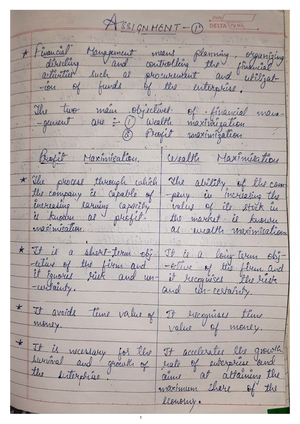 ASSIGNMENT - 1
DELTA
* Financial Management means planning, organizing
directing and controlling the financial
activities such as procurement and utilizat-
-ion of funds of the enterprise.
The two main objectives of financial mana-
gement are :- ① Wealth maximization
② Profit maximization
Profit Maximization
* The process through which
the company is capable of
increasing earning capacity
is known as profit-
maximization.
* It is a short-term obj-
ective of the firm and
it ignores risk and un-
-certainty.
* It avoids time value of
money.
* It is necessary for the
survival and growth of
the enterprise.
Wealth Maximization
The ability of the com-
-pany in increasing the
value of its stock in
the market is known
as wealth maximization
It is a long-term obj-
-ective of the firm and
it recognises the risk
and un-certainty.
It recognises time
value of money.
It accelerates the growth
rate of enterprise and
aims at attaining the
maximum share of the
economy.